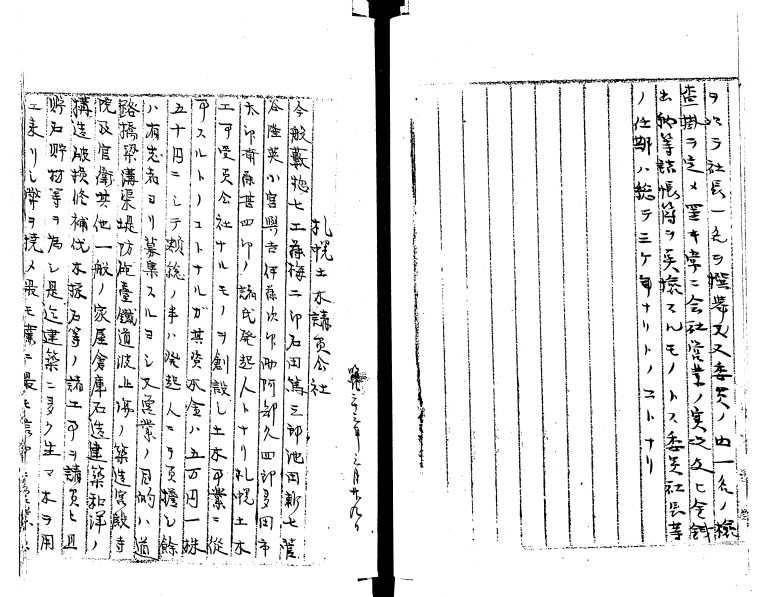 ヲ以テ社長一名ヲ撰挙シ又委員ノ内一名ノ檢
査掛ヲ定メ置キ常ニ会社営業ノ実況及ヒ金銭
出納等諸帳簿ヲ検スルモノトス委員社長等
ノ任期ハ総テ三ケ年ナリトノコトナリ
札幌土木請負会社
明治二十三年 月廿九日
今般 惣七工藤梅二郎石田篤三郎池田新七菅
谷 英小宮 吉伊藤次郎 阿部久四郎多田市
太郎斎藤甚四郎ノ諸氏発起人トナリ札幌土木
工事受負会社ナルモノヲ創設シ土木事業ニ従
事スルトノコトナルガ其資本金ハ五万円一株
五十円ニシテ総ノ半ハ発起人ニテ負擔シ餘
ハ有志者ヨリ募集スルヨシ又営業ノ目的ハ道
路橋梁溝渠堤防砲臺鐵道波止場ノ築造宮殿寺
院及官衙其他一般ノ家屋倉庫石造建築和洋ノ
構造破損修補伐木採石等ノ諸工事ヲ請負ヒ且
貯石貯物等ヲ為シ是迄建築ニ多ク生マ木ヲ用
エ来リシ弊ヲ矯メ最モ ニ最モ